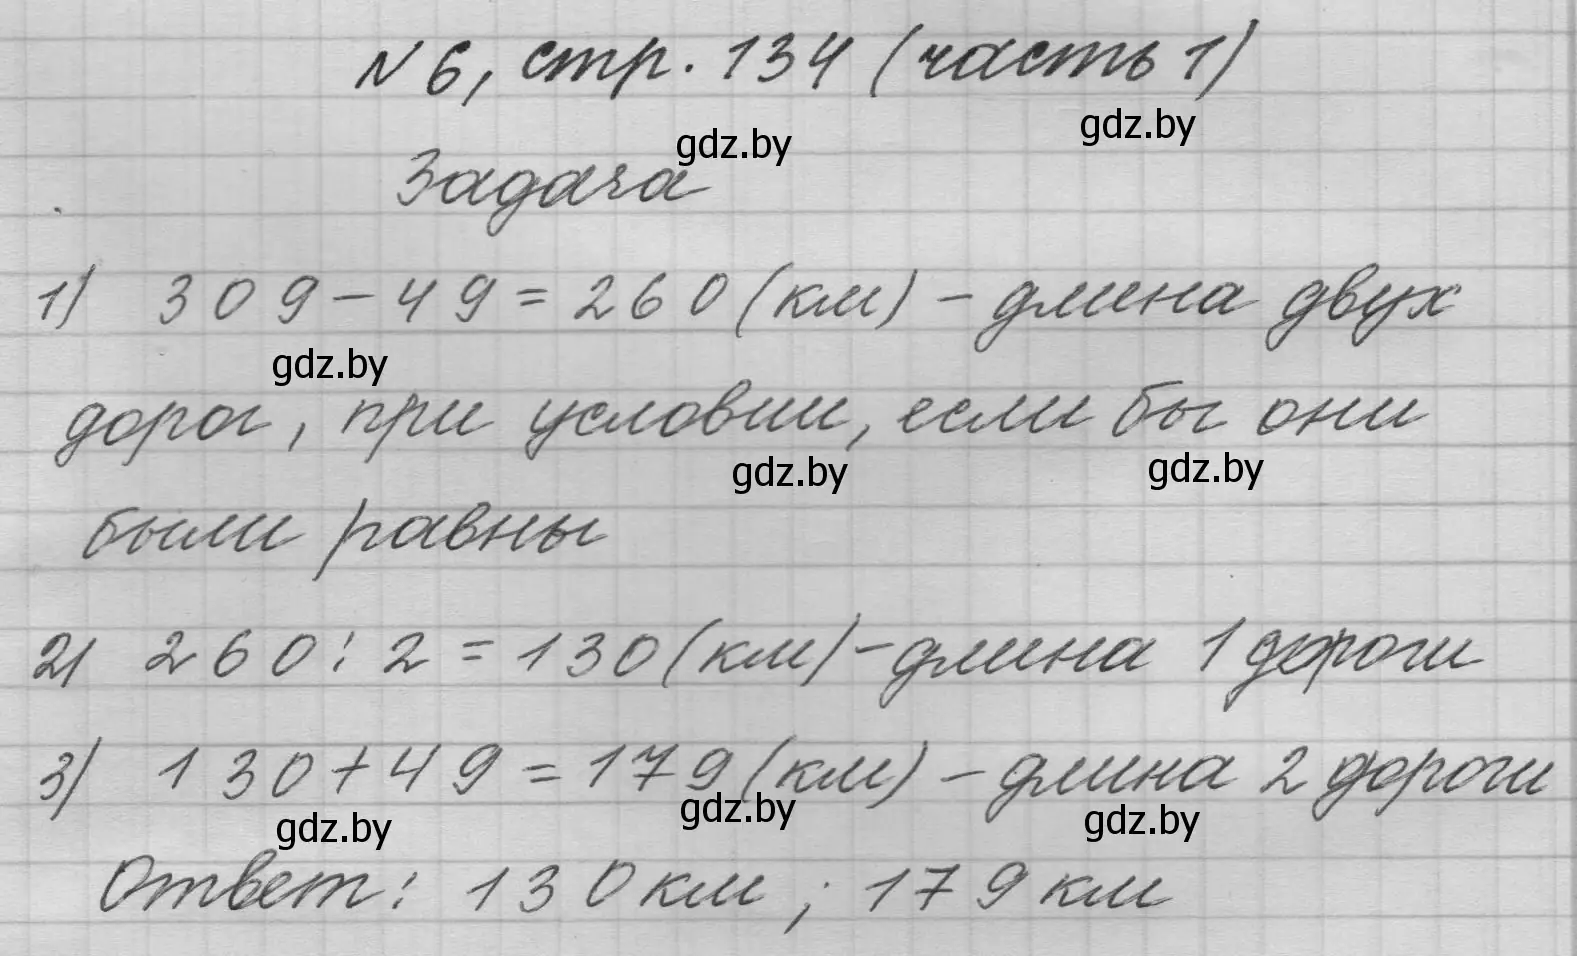 N 6, стр. 134 (часть 1)
gdz.by
gdz.by
Задача
1) 309 - 49 = 260 (км) - длина двух
gdz.by
дорог, при условии, если бы они
gdz.by
gdz.by
были равны
2) 260 : 2 = 130 (км) - длина 1 дороги
3) 130 + 49 = 179 (км) - длина 2 дороги
gdz.by
gdz.by
gdz.by
Ответ: 130 км ; 179 км